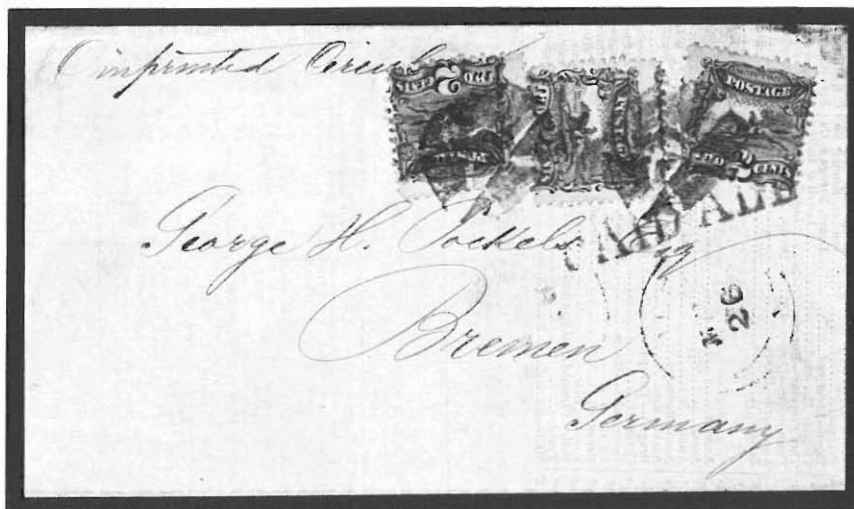 imprinted Circular
POSTAGE
TWO CENTS
PAID ALL
George H. Pockels Esq
26
Bremen
Germany